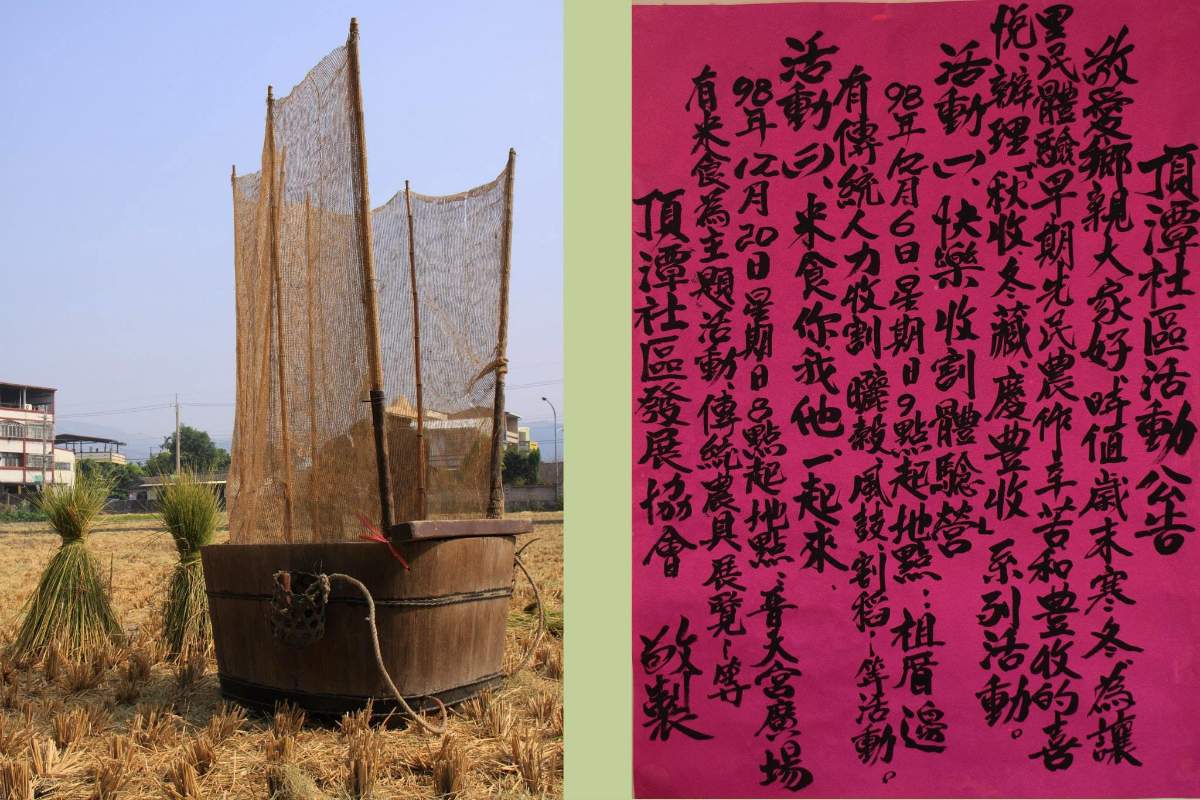 頂潭社區活動公告
敬愛鄉親大家好、時值歲末寒冬、為讓
里民體驗早期先民農作辛苦和豊收的喜
悅、辦理「秋收冬藏、慶豊收」系列活動。
活動(一)、快樂收割體驗營
98年12月6日星期日9點起地點：祖厝邊
有傳統人力收割、曬穀、風鼓、割稻、等活動。
活動(二)、米食你我他、一起來、
98年12月20日星期日8點起地點：普天宮廣場
有米食為主題活動、傳統農具展覽、等
頂潭社區發展協會 敬製